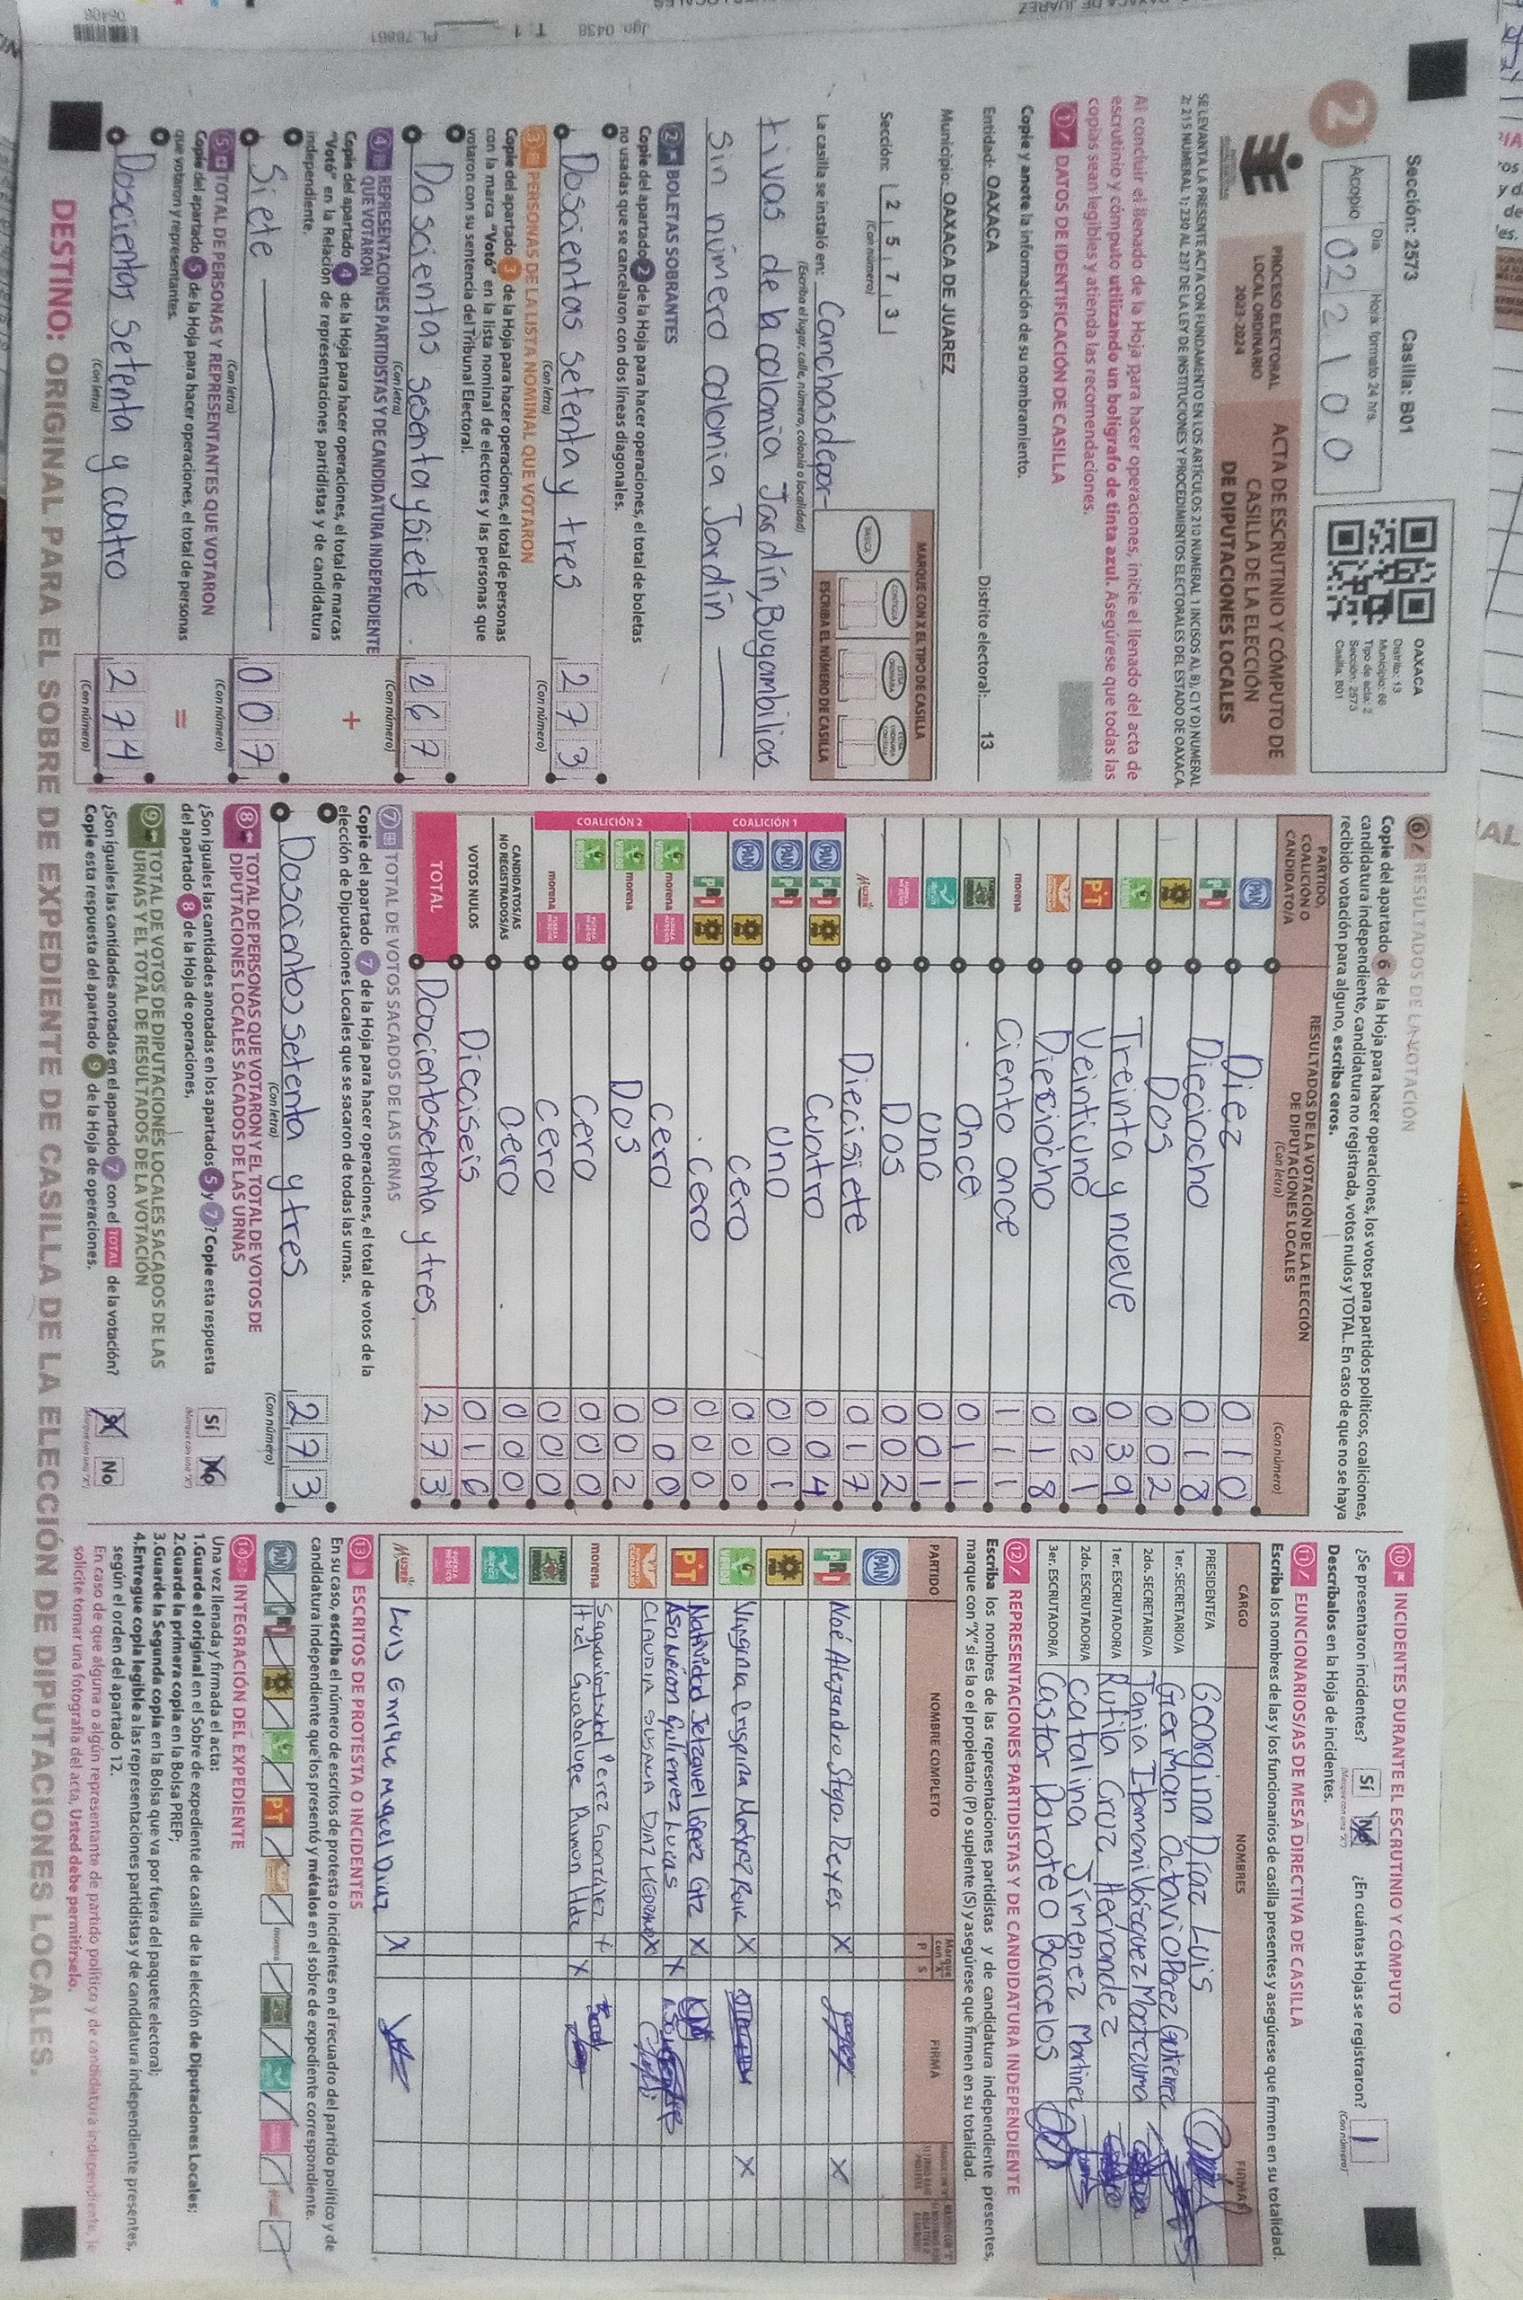 Sección: 2573 Casilla: B01
2
Día Hora: formato 24 hrs.
Acopio 02 2100
OAXACA
Distrito: 13
Municipio: 66
Tipo de acta: 2
Sección: 2573
Casilla: B01
PROCESO ELECTORAL
LOCAL ORDINARIO
2023-2024
ACTA DE ESCRUTINIO Y CÓMPUTO DE
CASILLA DE LA ELECCIÓN
DE DIPUTACIONES LOCALES
SE LEVANTA LA PRESENTE ACTA CON FUNDAMENTO EN LOS ARTÍCULOS 210 NUMERAL 1 INCISOS A), B), C) Y D) NUMERAL
2; 215 NUMERAL 1; 230 AL 237 DE LA LEY DE INSTITUCIONES Y PROCEDIMIENTOS ELECTORALES DEL ESTADO DE OAXACA.
Al concluir el llenado de la Hoja para hacer operaciones, inicie el llenado del acta de
escrutinio y cómputo utilizando un bolígrafo de tinta azul. Asegúrese que todas las
copias sean legibles y atienda las recomendaciones.
1 DATOS DE IDENTIFICACIÓN DE CASILLA
Copie y anote la información de su nombramiento.
Entidad: OAXACA Distrito electoral: 13
Municipio: OAXACA DE JUAREZ
Sección: 2 5 7 3
(Con número)
MARQUE CON X EL TIPO DE CASILLA
BÁSICA CONTIGUA EXTRA ORDINARIA EXTRA ORDINARIA CONTIGUA
ESCRIBA EL NÚMERO DE CASILLA
La casilla se instaló en: Canchas depor-
(Escriba el lugar, calle, número, colonia o localidad)
tivas de la colonia Jardín, Bugambilias
sin número colonia Jardín
2 BOLETAS SOBRANTES
Copie del apartado 2 de la Hoja para hacer operaciones, el total de boletas
no usadas que se cancelaron con dos líneas diagonales.
Doscientas setenta y tres 273
(Con letra) (Con número)
3 PERSONAS DE LA LISTA NOMINAL QUE VOTARON
Copie del apartado 3 de la Hoja para hacer operaciones, el total de personas
con la marca "Votó" en la lista nominal de electores y las personas que
votaron con su sentencia del Tribunal Electoral.
Doscientas sesenta y siete 267
(Con letra) (Con número)
4 REPRESENTACIONES PARTIDISTAS Y DE CANDIDATURA INDEPENDIENTE
QUE VOTARON
Copie del apartado 4 de la Hoja para hacer operaciones, el total de marcas
"Votó" en la Relación de representaciones partidistas y de candidatura
independiente.
+
Siete 007
(Con letra) (Con número)
5 TOTAL DE PERSONAS Y REPRESENTANTES QUE VOTARON
Copie del apartado 5 de la Hoja para hacer operaciones, el total de personas
que votaron y representantes.
=
Doscientas setenta y cuatro 274
(Con letra) (Con número)
6 RESULTADOS DE LA VOTACIÓN
Copie del apartado 6 de la Hoja para hacer operaciones, los votos para partidos políticos, coaliciones,
candidatura independiente, candidatura no registrada, votos nulos y TOTAL. En caso de que no se haya
recibido votación para alguno, escriba ceros.
PARTIDO, COALICIÓN O CANDIDATO/A
RESULTADOS DE LA VOTACIÓN DE LA ELECCIÓN DE DIPUTACIONES LOCALES
(Con letra) (Con número)
PAN Diez 010
PRI Dieciocho 018
Dos 002
VERDE Treinta y nueve 039
PT Veintiuno 021
Dieciocho 018
morena Ciento once 111
Once 011
Uno 001
Dos 002
MUJER Diecisiete 017
COALICIÓN 1
PAN PRI Cuatro 004
PAN PRI Uno 001
PAN Cero 000
PRI Cero 000
COALICIÓN 2
VERDE morena Cero 000
VERDE morena Dos 002
VERDE Cero 000
morena Cero 000
CANDIDATOS/AS
NO REGISTRADOS/AS Cero 000
VOTOS NULOS Dieciseis 016
TOTAL Doscientos setenta y tres 273
7 TOTAL DE VOTOS SACADOS DE LAS URNAS
Copie del apartado 7 de la Hoja para hacer operaciones, el total de votos de la
elección de Diputaciones Locales que se sacaron de todas las urnas.
Doscientos setenta y tres 273
(Con letra) (Con número)
8 TOTAL DE PERSONAS QUE VOTARON Y EL TOTAL DE VOTOS DE
DIPUTACIONES LOCALES SACADOS DE LAS URNAS
¿Son iguales las cantidades anotadas en los apartados 5 y 7? Copie esta respuesta
del apartado 8 de la Hoja de operaciones.
Sí No
(Marque con una "X")
9 TOTAL DE VOTOS DE DIPUTACIONES LOCALES SACADOS DE LAS
URNAS Y EL TOTAL DE RESULTADOS DE LA VOTACIÓN
¿Son iguales las cantidades anotadas en el apartado 7 con el TOTAL de la votación?
Copie esta respuesta del apartado 9 de la Hoja de operaciones.
Sí No
(Marque con una "X")
10 INCIDENTES DURANTE EL ESCRUTINIO Y CÓMPUTO
¿Se presentaron incidentes? Sí No ¿En cuántas Hojas se registraron? 1
(Marque con una "X") (Con número)
Descríbalos en la Hoja de incidentes.
11 FUNCIONARIOS/AS DE MESA DIRECTIVA DE CASILLA
Escriba los nombres de las y los funcionarios de casilla presentes y asegúrese que firmen en su totalidad.
CARGO NOMBRES FIRMAS
PRESIDENTE/A Georgina Díaz Luis
1er. SECRETARIO/A German Octavio Perez Gutierrez
2do. SECRETARIO/A Tania Itamani Vázquez Moctezuma
1er. ESCRUTADOR/A Rufila Cruz Hernandez
2do. ESCRUTADOR/A Catalina Jímenez Martinez
3er. ESCRUTADOR/A Castor Doroteo Barcelos
12 REPRESENTACIONES PARTIDISTAS Y DE CANDIDATURA INDEPENDIENTE
Escriba los nombres de las representaciones partidistas y de candidatura independiente presentes,
marque con "X" si es la o el propietario (P) o suplente (S) y asegúrese que firmen en su totalidad.
PARTIDO NOMBRE COMPLETO Marque con "X" P S FIRMA
PAN
PRI Noé Alejandro Stgo. Reyes X X
VERDE Virginia Crispina Mendez Ruiz X X
PT Natividad Jetzavel López Gtz X
Asunción Gutierrez Lucas X
Claudia Susana Diaz Medrano X
morena Sagrario Itzel Perez Gonzalez +
Itzel Guadalupe Ramon Hdz X
MUJER Luis Enrique Miguel Diaz X
13 ESCRITOS DE PROTESTA O INCIDENTES
En su caso, escriba el número de escritos de protesta o incidentes en el recuadro del partido político y de
candidatura independiente que los presentó y métalos en el sobre de expediente de casilla correspondiente.
14 INTEGRACIÓN DEL EXPEDIENTE
Una vez llenada y firmada el acta:
1.Guarde el original en el Sobre de expediente de casilla de la elección de Diputaciones Locales;
2.Guarde la primera copia en la Bolsa PREP;
3.Guarde la Segunda copia en la Bolsa que va por fuera del paquete electoral;
4.Entregue copia legible a las representaciones partidistas y de candidatura independiente presentes,
según el orden del apartado 12.
En caso de que alguna o algún representante de partido político y de candidatura independiente, le
solicite tomar una fotografía del acta, Usted debe permitírselo.
DESTINO: ORIGINAL PARA EL SOBRE DE EXPEDIENTE DE CASILLA DE LA ELECCIÓN DE DIPUTACIONES LOCALES.